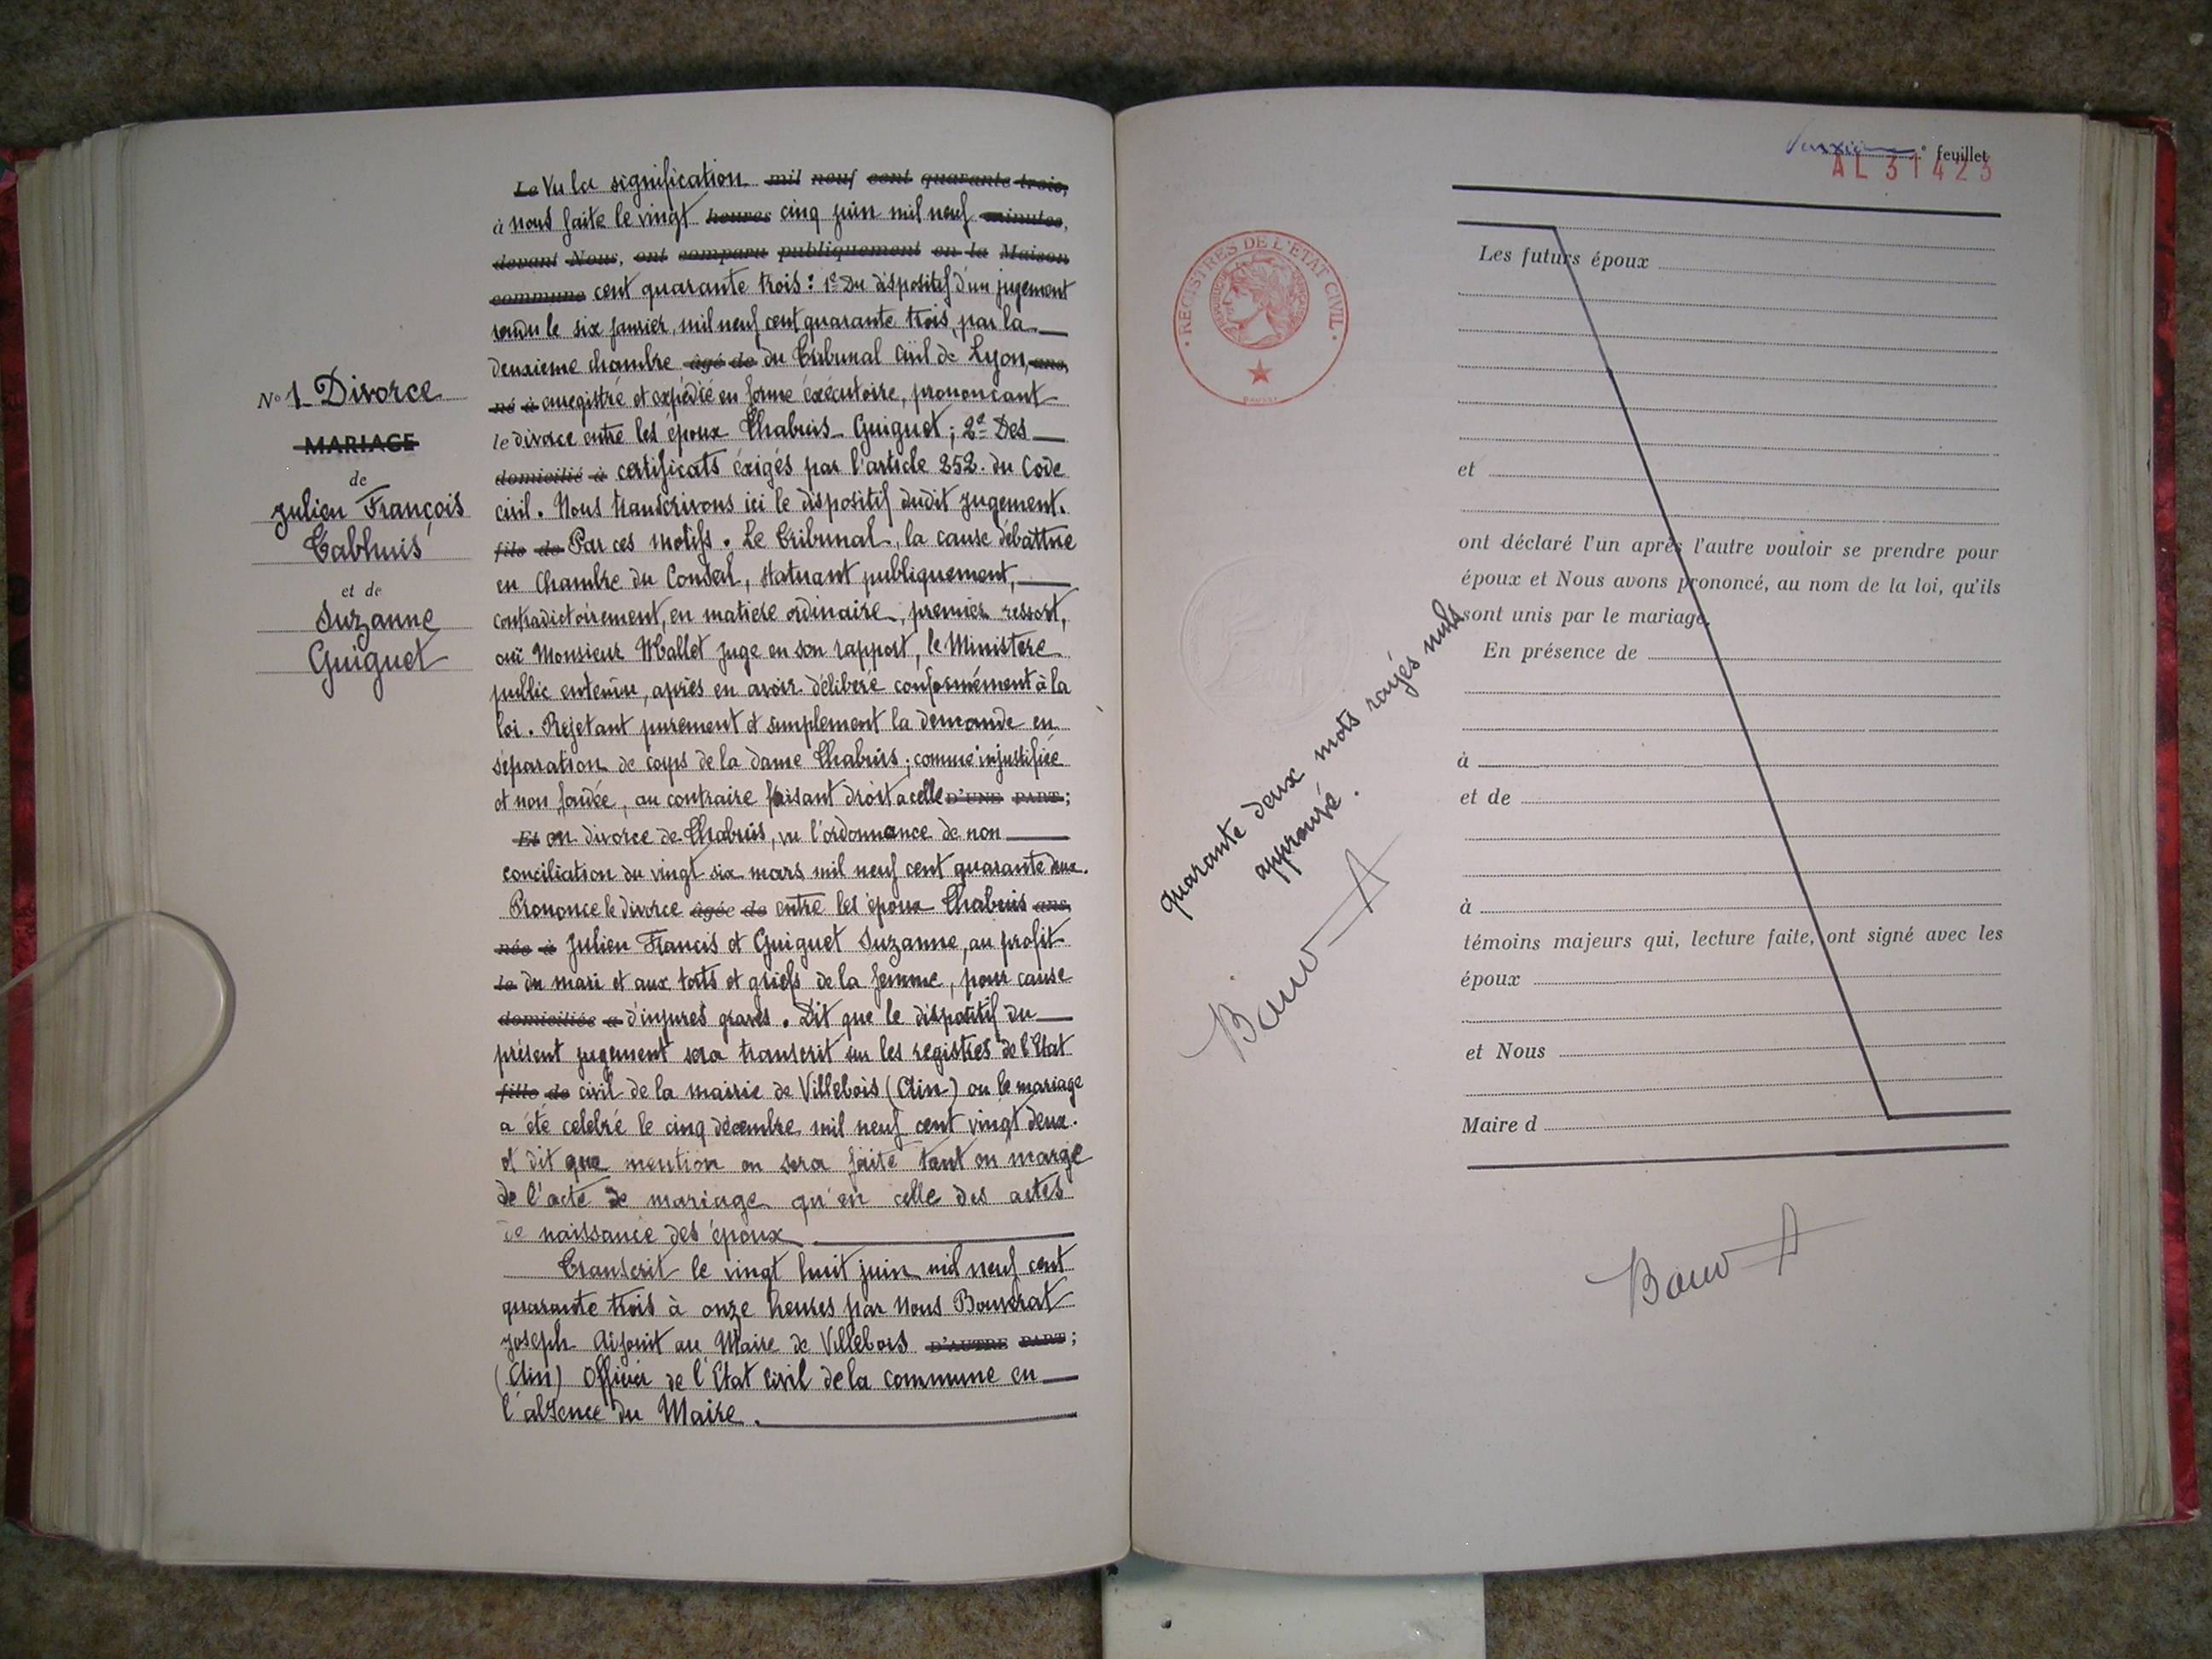 N° 1 Divorce
MARIAGE
de
Julien François
Cabhuis
et de
Suzanne
Guiguet
Le Vu la signification mil neuf cent quarante-trois,
à nous faite le vingt heures cinq juin mil neuf minutes,
devant Nous, ont comparu publiquement en la Maison
commune cent quarante trois : 1° Du dispositif d'un jugement
rendu le six janvier, mil neuf cent quarante trois, par la
deuxième chambre âgé de du Tribunal Civil de Lyon, ans,
né à enregistré et expédié en forme éxécutoire, prononcant
le divorce entre les époux Chabuis Guiguet ; 2° Des
domicilié à certificats éxigés par l'article 252. du Code
civil. Nous transcrivons ici le dispositif dudit jugement.
fils de Par ces motifs. Le Tribunal, la cause débattue
en Chambre du Conseil, statuant publiquement,
contradictoirement, en matière ordinaire, premier ressort,
ouï Monsieur Mallet Juge en son rapport, le Ministère
public entendu, après en avoir délibéré conformément à la
loi. Rejetant purement et simplement la demande en
séparation de corps de la dame Chabuis ; comme injustifiée
et non fondée, au contraire faisant droit a celle D'UNE PART ;
Et en divorce de Chabuis, vu l'ordonnance de non
conciliation du vingt six mars mil neuf cent quarante deux.
Prononce le divorce âgée de entre les époux Chabuis ans,
née à Julien Francis et Guiguet Suzanne, au profit
le du mari et aux torts et griefs de la femme, pour cause
domiciliée a d'injures graves. Dit que le dispositif du
présent jugement sera transcrit sur les registres de l'Etat
fille de civil de la mairie de Villebois (Ain) ou le mariage
a été celebré le cinq décembre mil neuf cent vingt deux.
et dit que mention en sera faite tant en marge
de l'acte de mariage qu'en celle des actes
de naissance des époux
Transcrit le vingt huit juin mil neuf cent
quarante trois à onze heures par Nous Bouvrat
Joseph Adjoint au Maire de Villebois D'AUTRE PART ;
(Ain) Officier de l'Etat Civil de la commune en
l'absence du Maire.
REGISTRES DE L'ETAT CIVIL
quarante deux mots rayés nuls
approuvé.
° feuillet
AL 31423
Les futurs époux
et
ont déclaré l'un après l'autre vouloir se prendre pour
époux et Nous avons prononcé, au nom de la loi, qu'ils
sont unis par le mariage,
En présence de
à
et de
à
témoins majeurs qui, lecture faite, ont signé avec les
époux
et Nous
Maire d